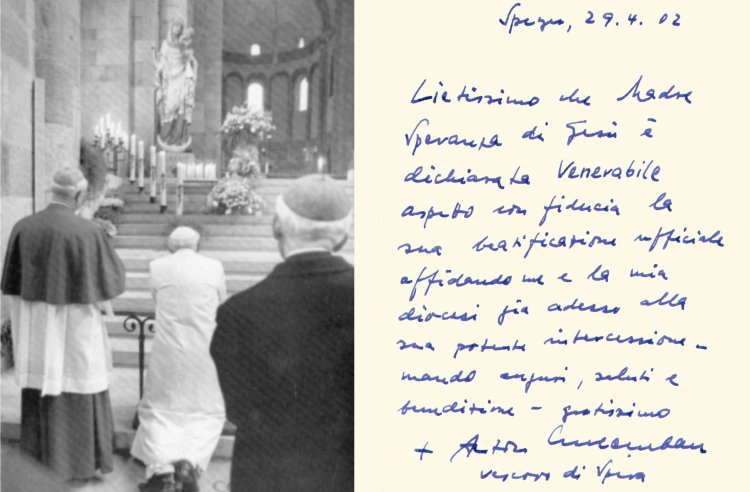 Speyer, 29.4.02
Lietissimo che Madre
Speranza di Gesù è
dichiarata Venerabile
aspetto con fiducia la
sua beatificazione ufficiale
affidando me e la mia
diocesi già adesso alla
sua potente intercessione –
mando auguri, saluti e
benedizione – gratissimo
+ Anton
vescovo di Spira